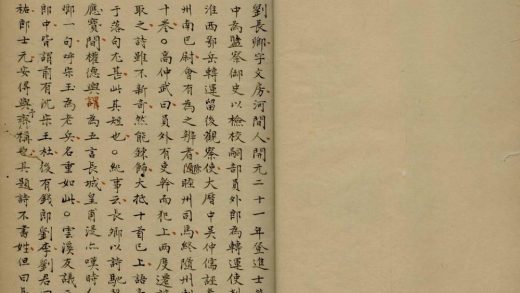 劉長卿字文房河間人開元二十一年登進士
中為監察御史以檢校祠部員外郎為轉運使判
淮西鄂岳轉運留後觀察使大曆中吳仲孺誣
州南巴尉會有為之辨者除睦州司馬終隨州刺
十卷○高仲武曰員外有吏幹而犯上兩度遷謫
取之詩雖不新奇然能錬飾大抵十首已上語
于落句尤甚此其短也○紀事云長卿以詩馳聲
應寶間權德輿謂為五言長城皇甫湜亦嘆時
卿一句呼宋玉為老兵名重如此○雲溪友議云
郎中皆謂前有沈宋王杜後有錢郎劉李劉君曰
祐郎士元安得與予齊稱也其題詩不書姓但曰長